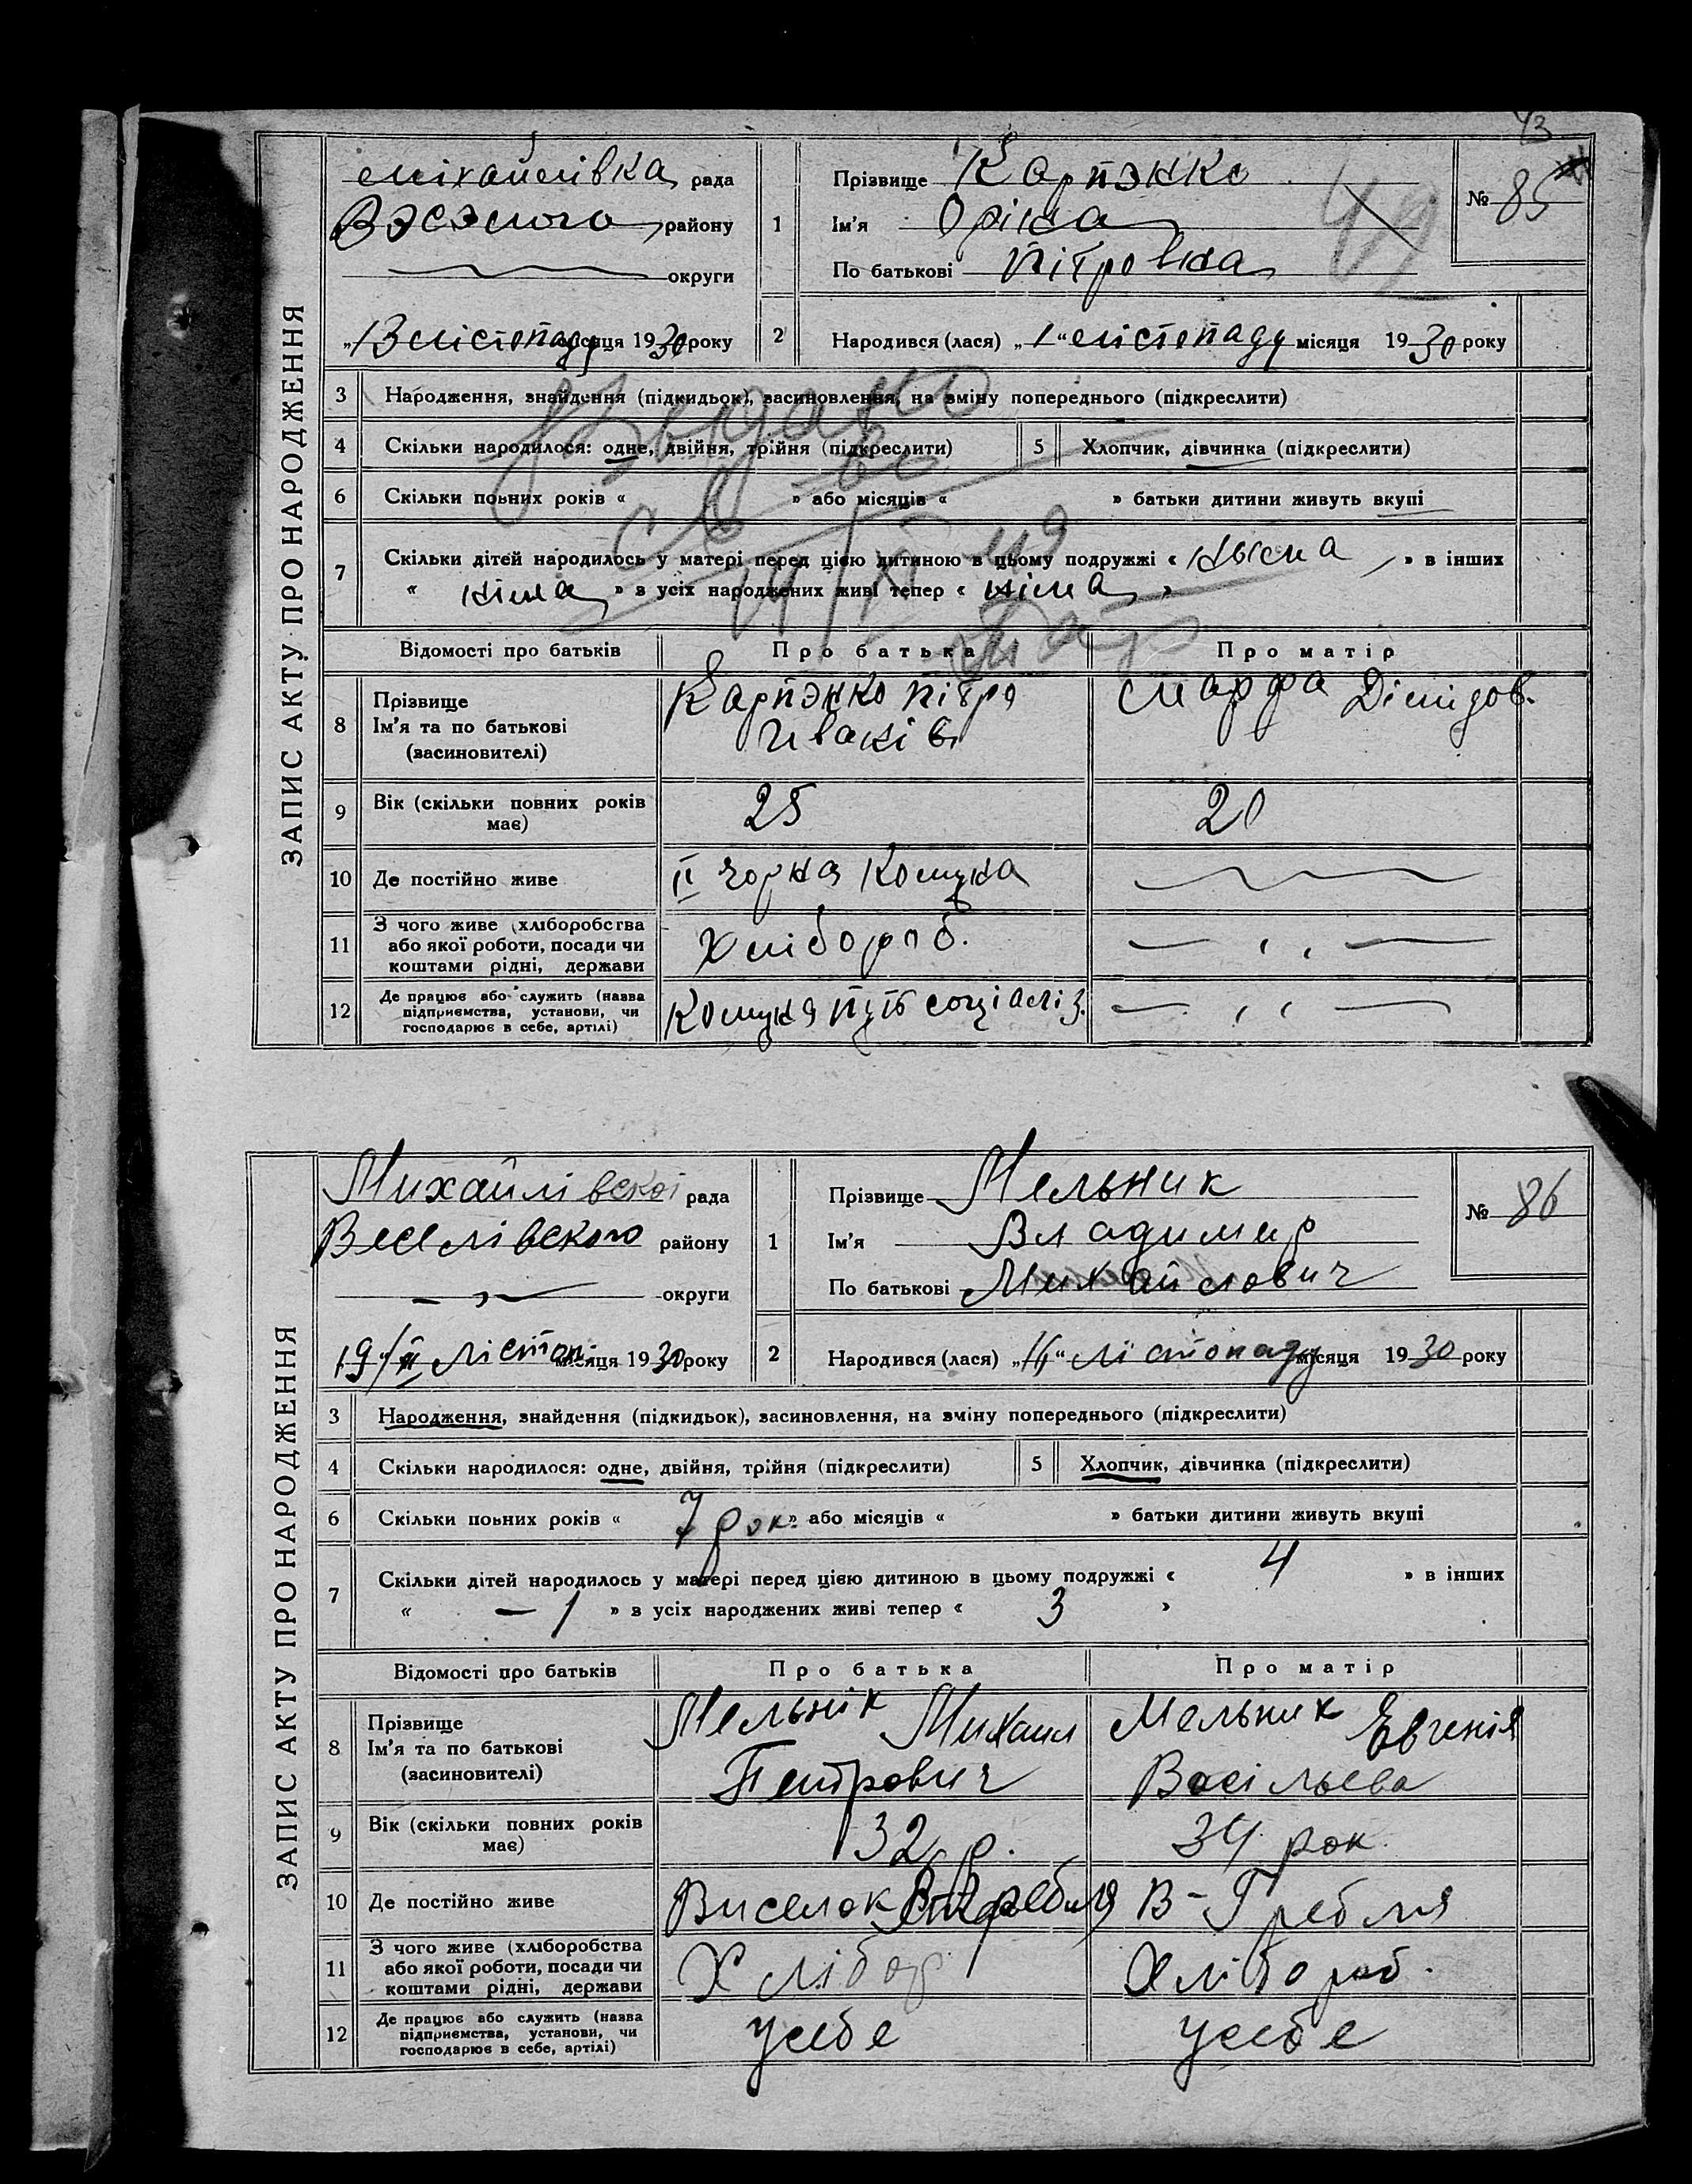 43
ЗАПИС АКТУ ПРО НАРОДЖЕННЯ
міхайлівка рада
Вэсэлого району
округи
„13 лістопаду місяця 1930 року
1
Прізвище Карпэнко
Ім'я Оріна
По батькові пітровна
№ 85
49
2
Народився (лася) „1“ лістопаду місяця 1930 року
3 Народження, знайдення (підкидьок), засиновлення, на зміну попереднього (підкреслити)
4 Скільки народилося: одне, двійня, трійня (підкреслити) 5 Хлопчик, дівчинка (підкреслити)
6 Скільки повних років « » або місяців « » батьки дитини живуть вкупі
7 Скільки дітей народилось у матері перед цією дитиною в цьому подружжі « ныма » в інших
« німа » в усіх народжених живі тепер « німа »
Відомості про батьків Про батька Про матір
8 Прізвище
Ім'я та по батькові
(засиновителі)
Карпэнко пітро
Иваків
марфа Дімідов.
9 Вік (скільки повних років має) 25 20
10 Де постійно живе II чорна Комуна
11 З чого живе (хліборобства або якої роботи, посади чи коштами рідні, держави Хлібороб. — „ —
12 Де працює або служить (назва підприємства, установи, чи господарює в себе, артілі) Комуна путь соціаліз. — „ —
ЗАПИС АКТУ ПРО НАРОДЖЕННЯ
Михайлівскої рада
Веселівского району
округи
19/II лістоп. місяця 1930 року
1
Прізвище Мельник
Ім'я Владимир
По батькові Михайлович
№ 86
2
Народився (лася) „16“ лістопаду місяця 1930 року
3 Народження, знайдення (підкидьок), засиновлення, на зміну попереднього (підкреслити)
4 Скільки народилося: одне, двійня, трійня (підкреслити) 5 Хлопчик, дівчинка (підкреслити)
6 Скільки повних років « 7 рок. » або місяців « » батьки дитини живуть вкупі
7 Скільки дітей народилось у матері перед цією дитиною в цьому подружжі « 4 » в інших
« — 1 » в усіх народжених живі тепер « 3 »
Відомості про батьків Про батька Про матір
8 Прізвище
Ім'я та по батькові
(засиновителі)
Мельнік Михаил
Петрович
Мельник Евгенія
Васільева
9 Вік (скільки повних років має) 32 р. 34 рок.
10 Де постійно живе Виселок Гребля В-Гребля
11 З чого живе (хліборобства або якої роботи, посади чи коштами рідні, держави Хлібор Хлібороб.
12 Де працює або служить (назва підприємства, установи, чи господарює в себе, артілі) усебе усебе